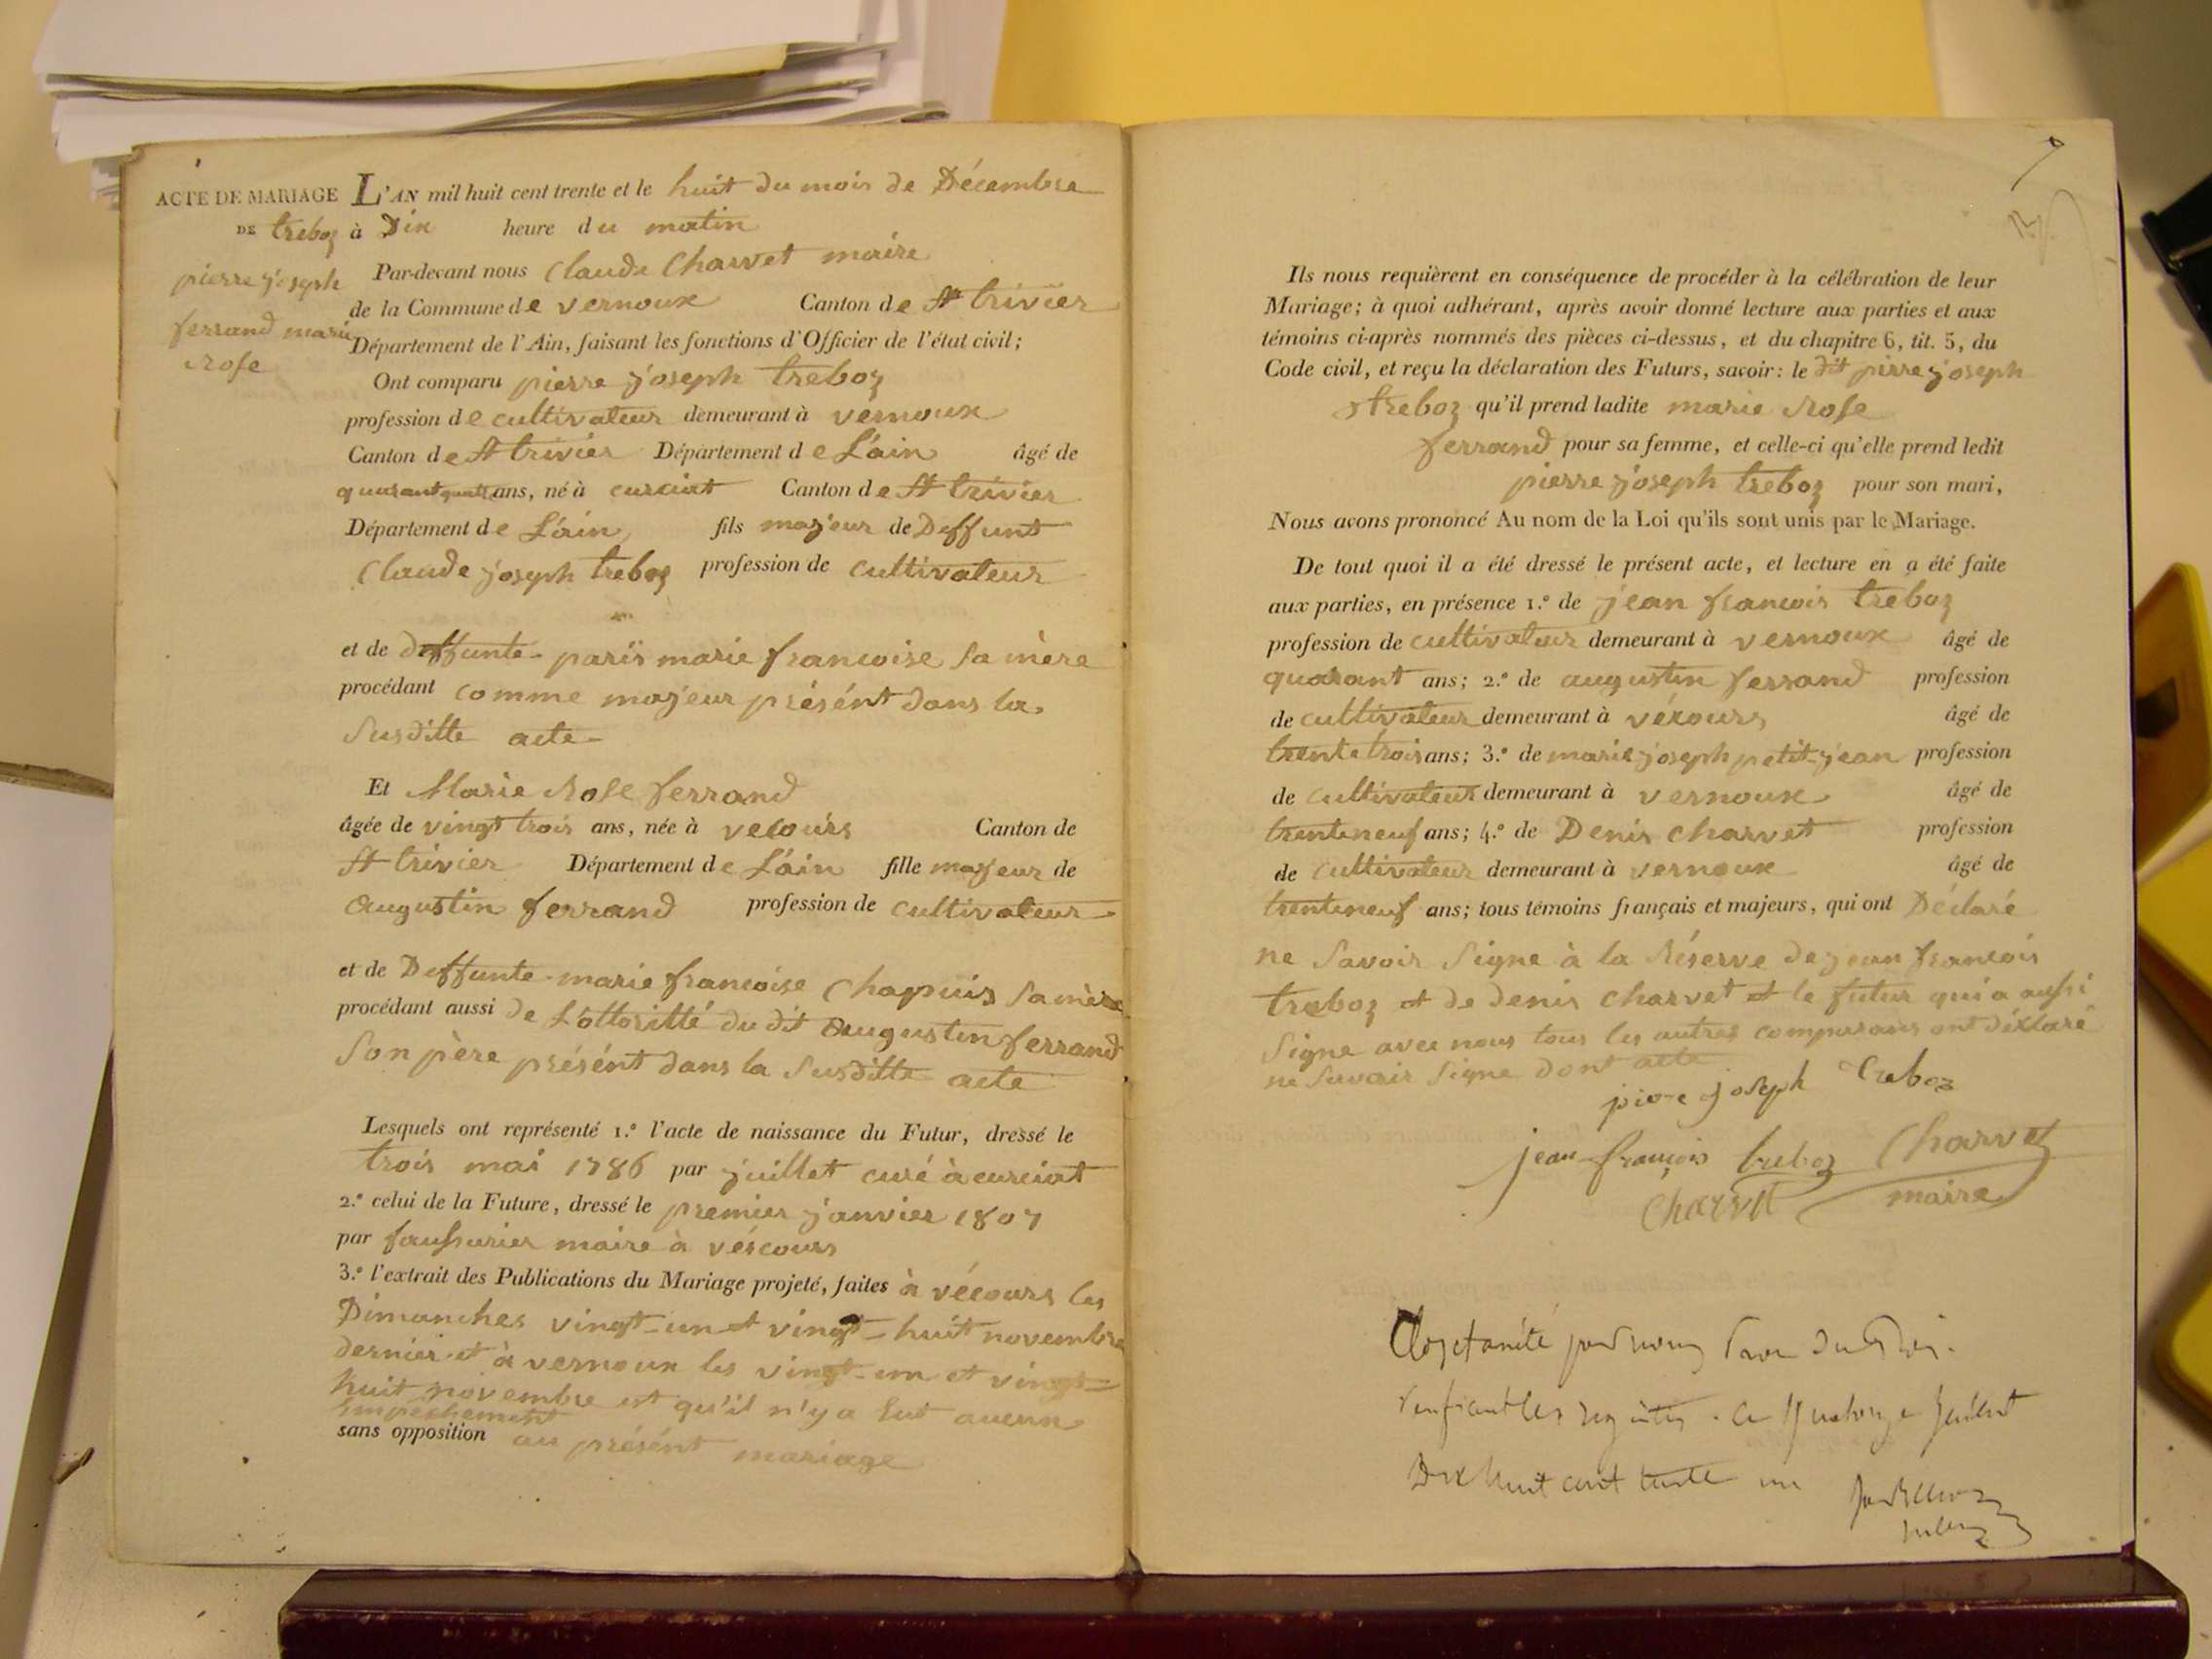 ACTE DE MARIAGE
DE treboz
pierre joseph
ferrand marie
rose
L'AN mil huit cent trente et le huit du mois de Décembre
à Dix heure du matin
Par-devant nous Claude Charvet maire
de la Commune de vernoux Canton de St trivier
Département de l'Ain, faisant les fonctions d'Officier de l'état civil;
Ont comparu pierre joseph treboz
profession de cultivateur demeurant à vernoux
Canton de St trivier Département de L'ain âgé de
quarantquatre ans, né à curciat Canton de St trivier
Département de L'ain fils majeur de Deffunt
Claude joseph treboz profession de cultivateur
et de deffunte paris marie francoise sa mère
procédant comme majeur présént dans la
susditte acte
Et Marie Rose ferrand
âgée de vingt trois ans, née à vecours Canton de
St trivier Département de L'ain fille majeur de
augustin ferrand profession de cultivateur
et de Deffunte marie francoise Chapuis sa mère
procédant aussi de L'ottoritté du dit augustin ferrand
son père présént dans la susditte acte
Lesquels ont représenté 1.º l'acte de naissance du Futur, dressé le
trois mai 1786 par juillet curé à curciat
2.º celui de la Future, dressé le premier janvier 1807
par faussurier maire à véscours
3.º l'extrait des Publications du Mariage projeté, faites à vécours les
Dimanches vingt-un et vingt-huit novembre
dernier et à vernoux les vingt-un et vingt-
huit novembre et qu'il n'y a eut aucun
empéchement
sans opposition au présént mariage
Ils nous requièrent en conséquence de procéder à la célébration de leur
Mariage; à quoi adhérant, après avoir donné lecture aux parties et aux
témoins ci-après nommés des pièces ci-dessus, et du chapitre 6, tit. 5, du
Code civil, et reçu la déclaration des Futurs, savoir: le dit pierre joseph
treboz qu'il prend ladite marie Rose
ferrand pour sa femme, et celle-ci qu'elle prend ledit
pierre joseph treboz pour son mari,
Nous avons prononcé Au nom de la Loi qu'ils sont unis par le Mariage.
De tout quoi il a été dressé le présent acte, et lecture en a été faite
aux parties, en présence 1.º de jean francois treboz
profession de cultivateur demeurant à vernoux âgé de
quarant ans; 2.º de augustin ferrand profession
de cultivateur demeurant à vécours âgé de
trente trois ans; 3.º de marie joseph petit-jean profession
de cultivateur demeurant à vernoux âgé de
trenteneuf ans; 4.º de Denis Charvet profession
de cultivateur demeurant à vernoux âgé de
trenteneuf ans; tous témoins français et majeurs, qui ont Déclaré
ne savoir signe à la réserve de jean francois
treboz et de denis charvet et le futur qui a aussi
signe avec nous tous les autres comparans ont déclaré
ne savoir signe dont acte
pierre joseph Treboz
jean françois treboz Charvet
Charvet maire
Clos et arrêté par nous
registres
Dix huit cent trente un